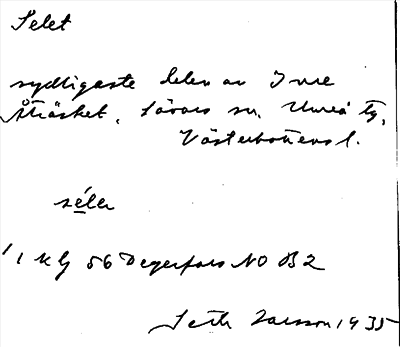 Selet
sydligaste delen av Inre
Åträsket, Sävars sn, Umeå tg,
Västerbottens l.
séle
1 kg 56 Degerfors NO B2
Seth Larsson 1935